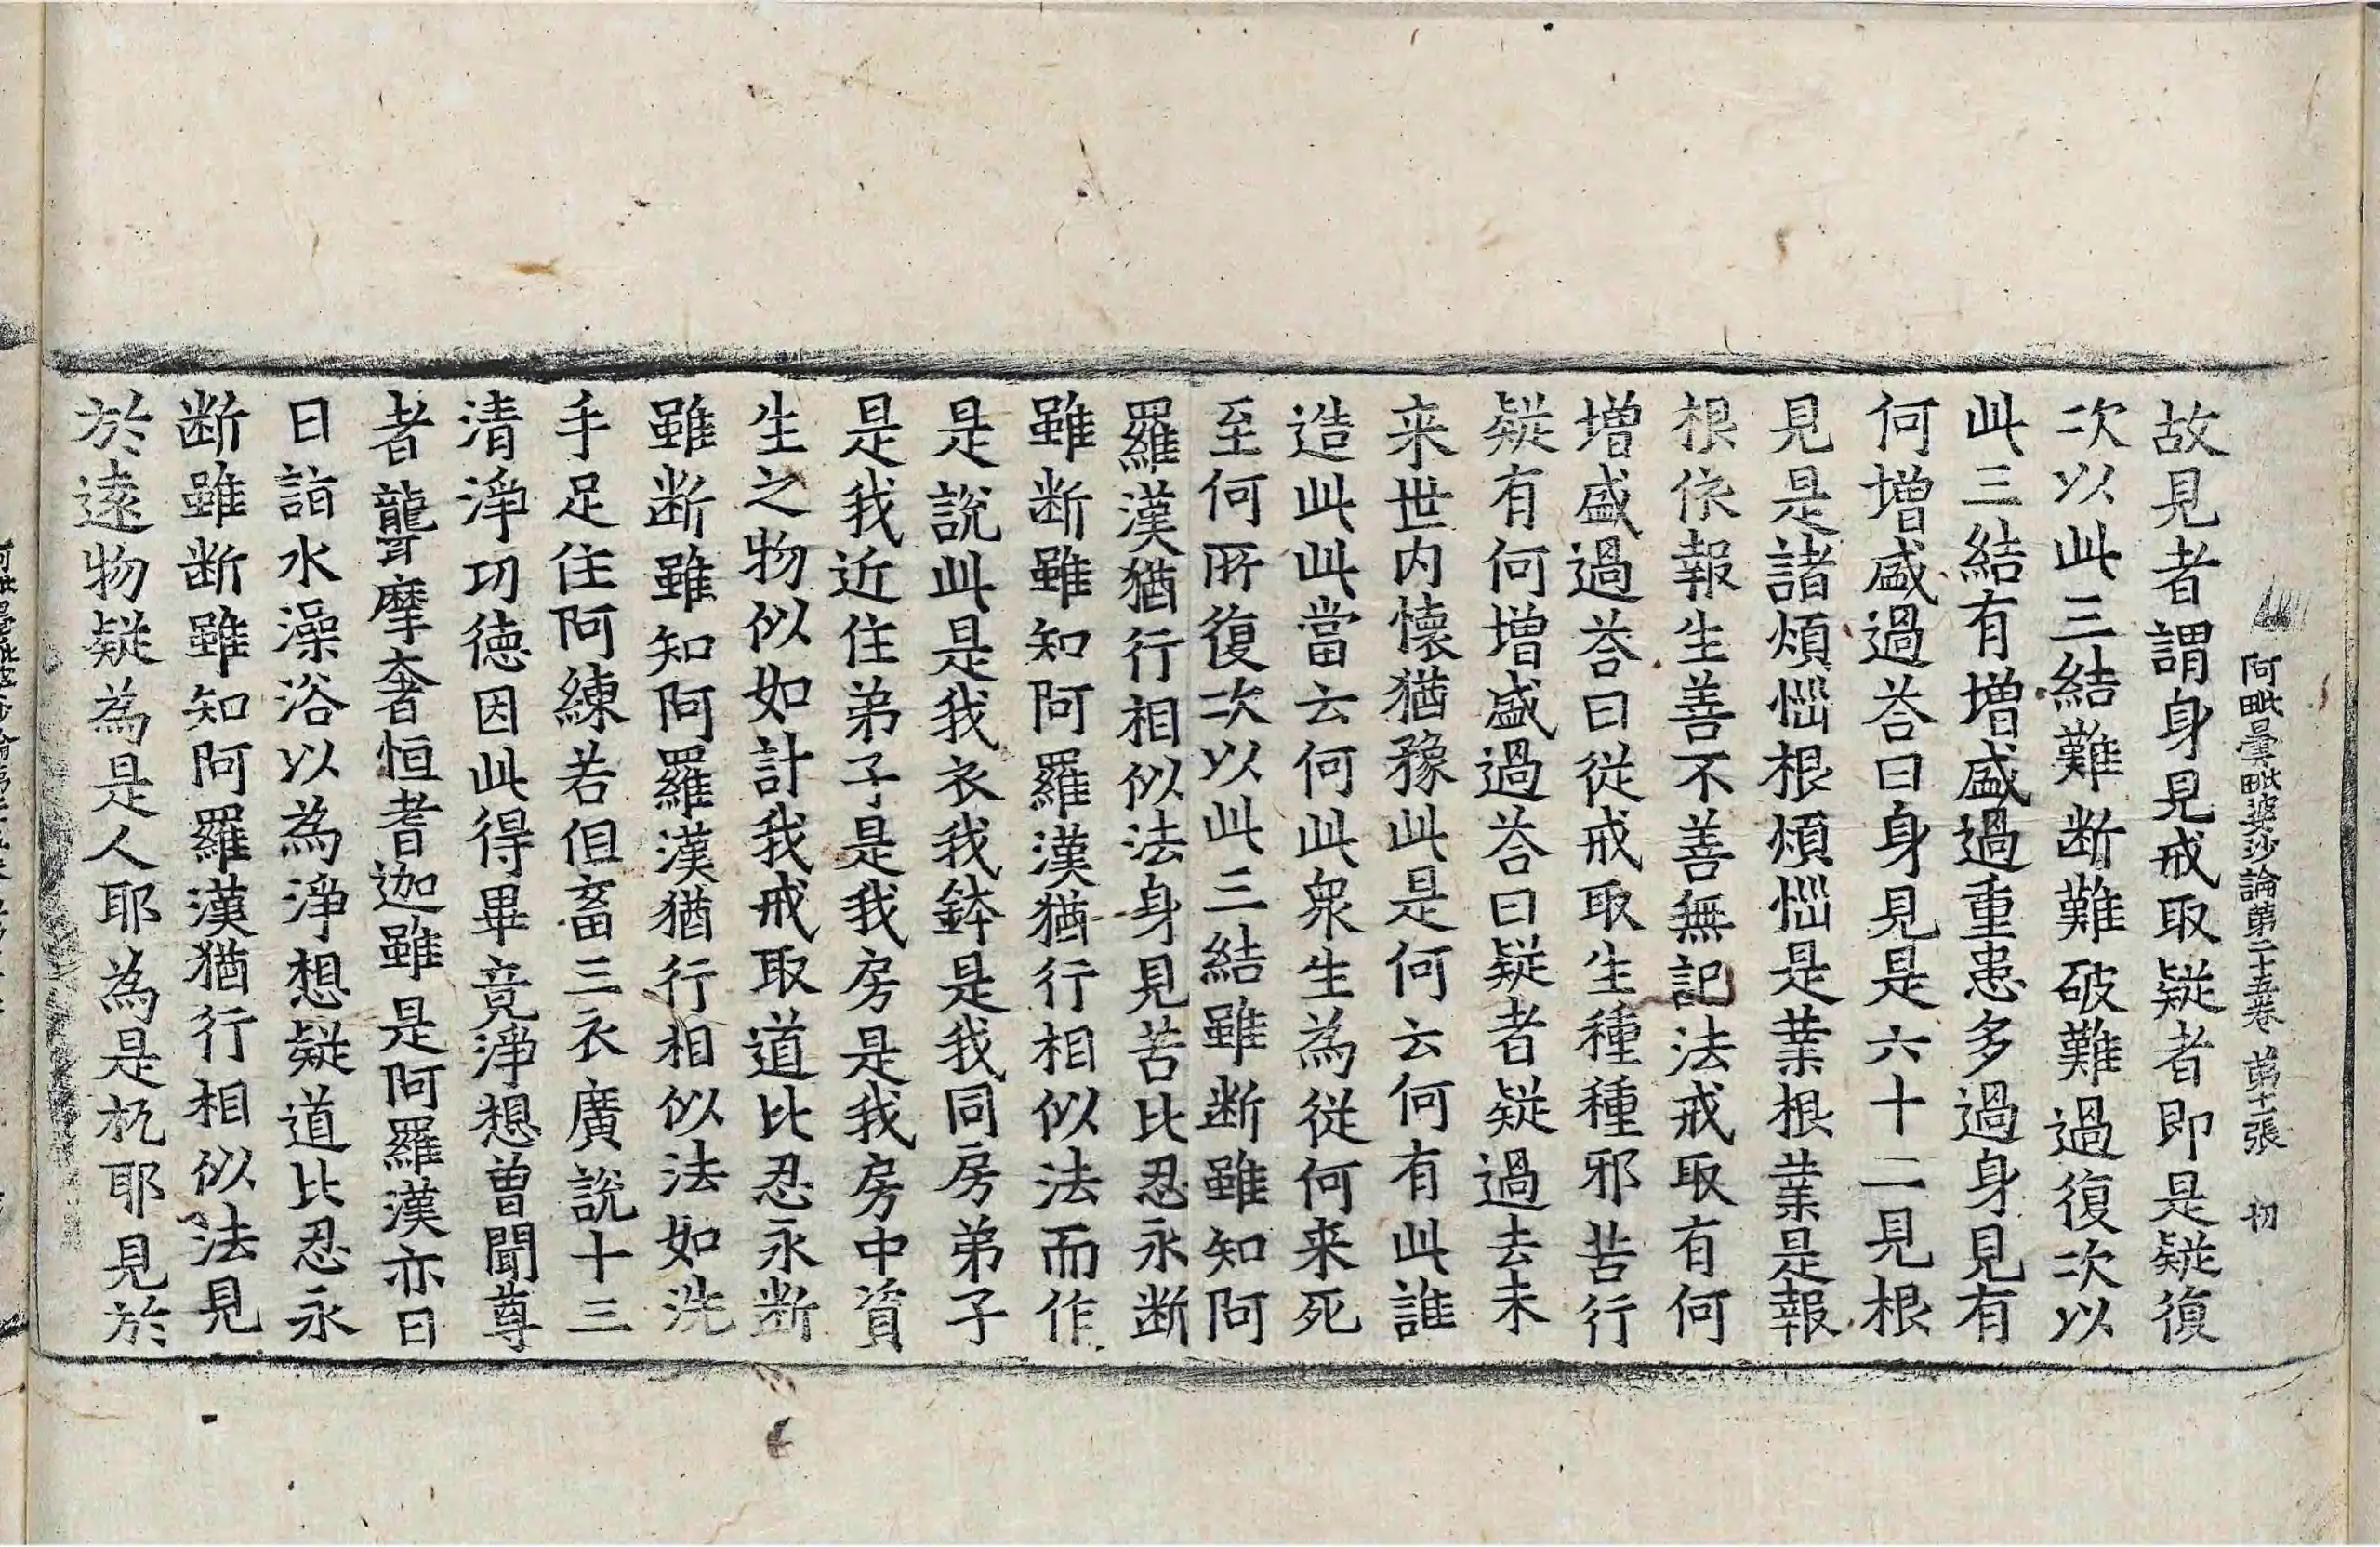 阿毗曇毗婆沙論第二十五卷　第十張　初
故見者謂身見戒取疑者即是疑復
次以此三結難断難破難過復次以
此三結有增盛過重患多過身見有
何增盛過荅曰身見是六十二見根
見是諸煩惱根煩惱是業根業是報
根依報生善不善無記法戒取有何
增盛過荅曰從戒取生種種邪苦行
疑有何增盛過荅曰疑者疑過去未
来世内懐猶豫此是何云何有此誰
造此此當云何此衆生為從何来死
至何所復次以此三結雖断雖知阿
羅漢猶行相似法身見苦比忍永断
雖断雖知阿羅漢猶行相似法而作
是說此是我衣我鉢是我同房弟子
是我近住弟子是我房是我房中資
生之物似如計我戒取道比忍永断
雖断雖知阿羅漢猶行相似法如洗
手足住阿練若但畜三衣廣說十三
清淨功徳因此得畢竟淨想曾聞尊
者聾摩奢恒耆迦雖是阿羅漢亦日
日詣水澡浴以為淨想疑道比忍永
断雖断雖知阿羅漢猶行相似法見
於遠物疑為是人耶為是杌耶見於